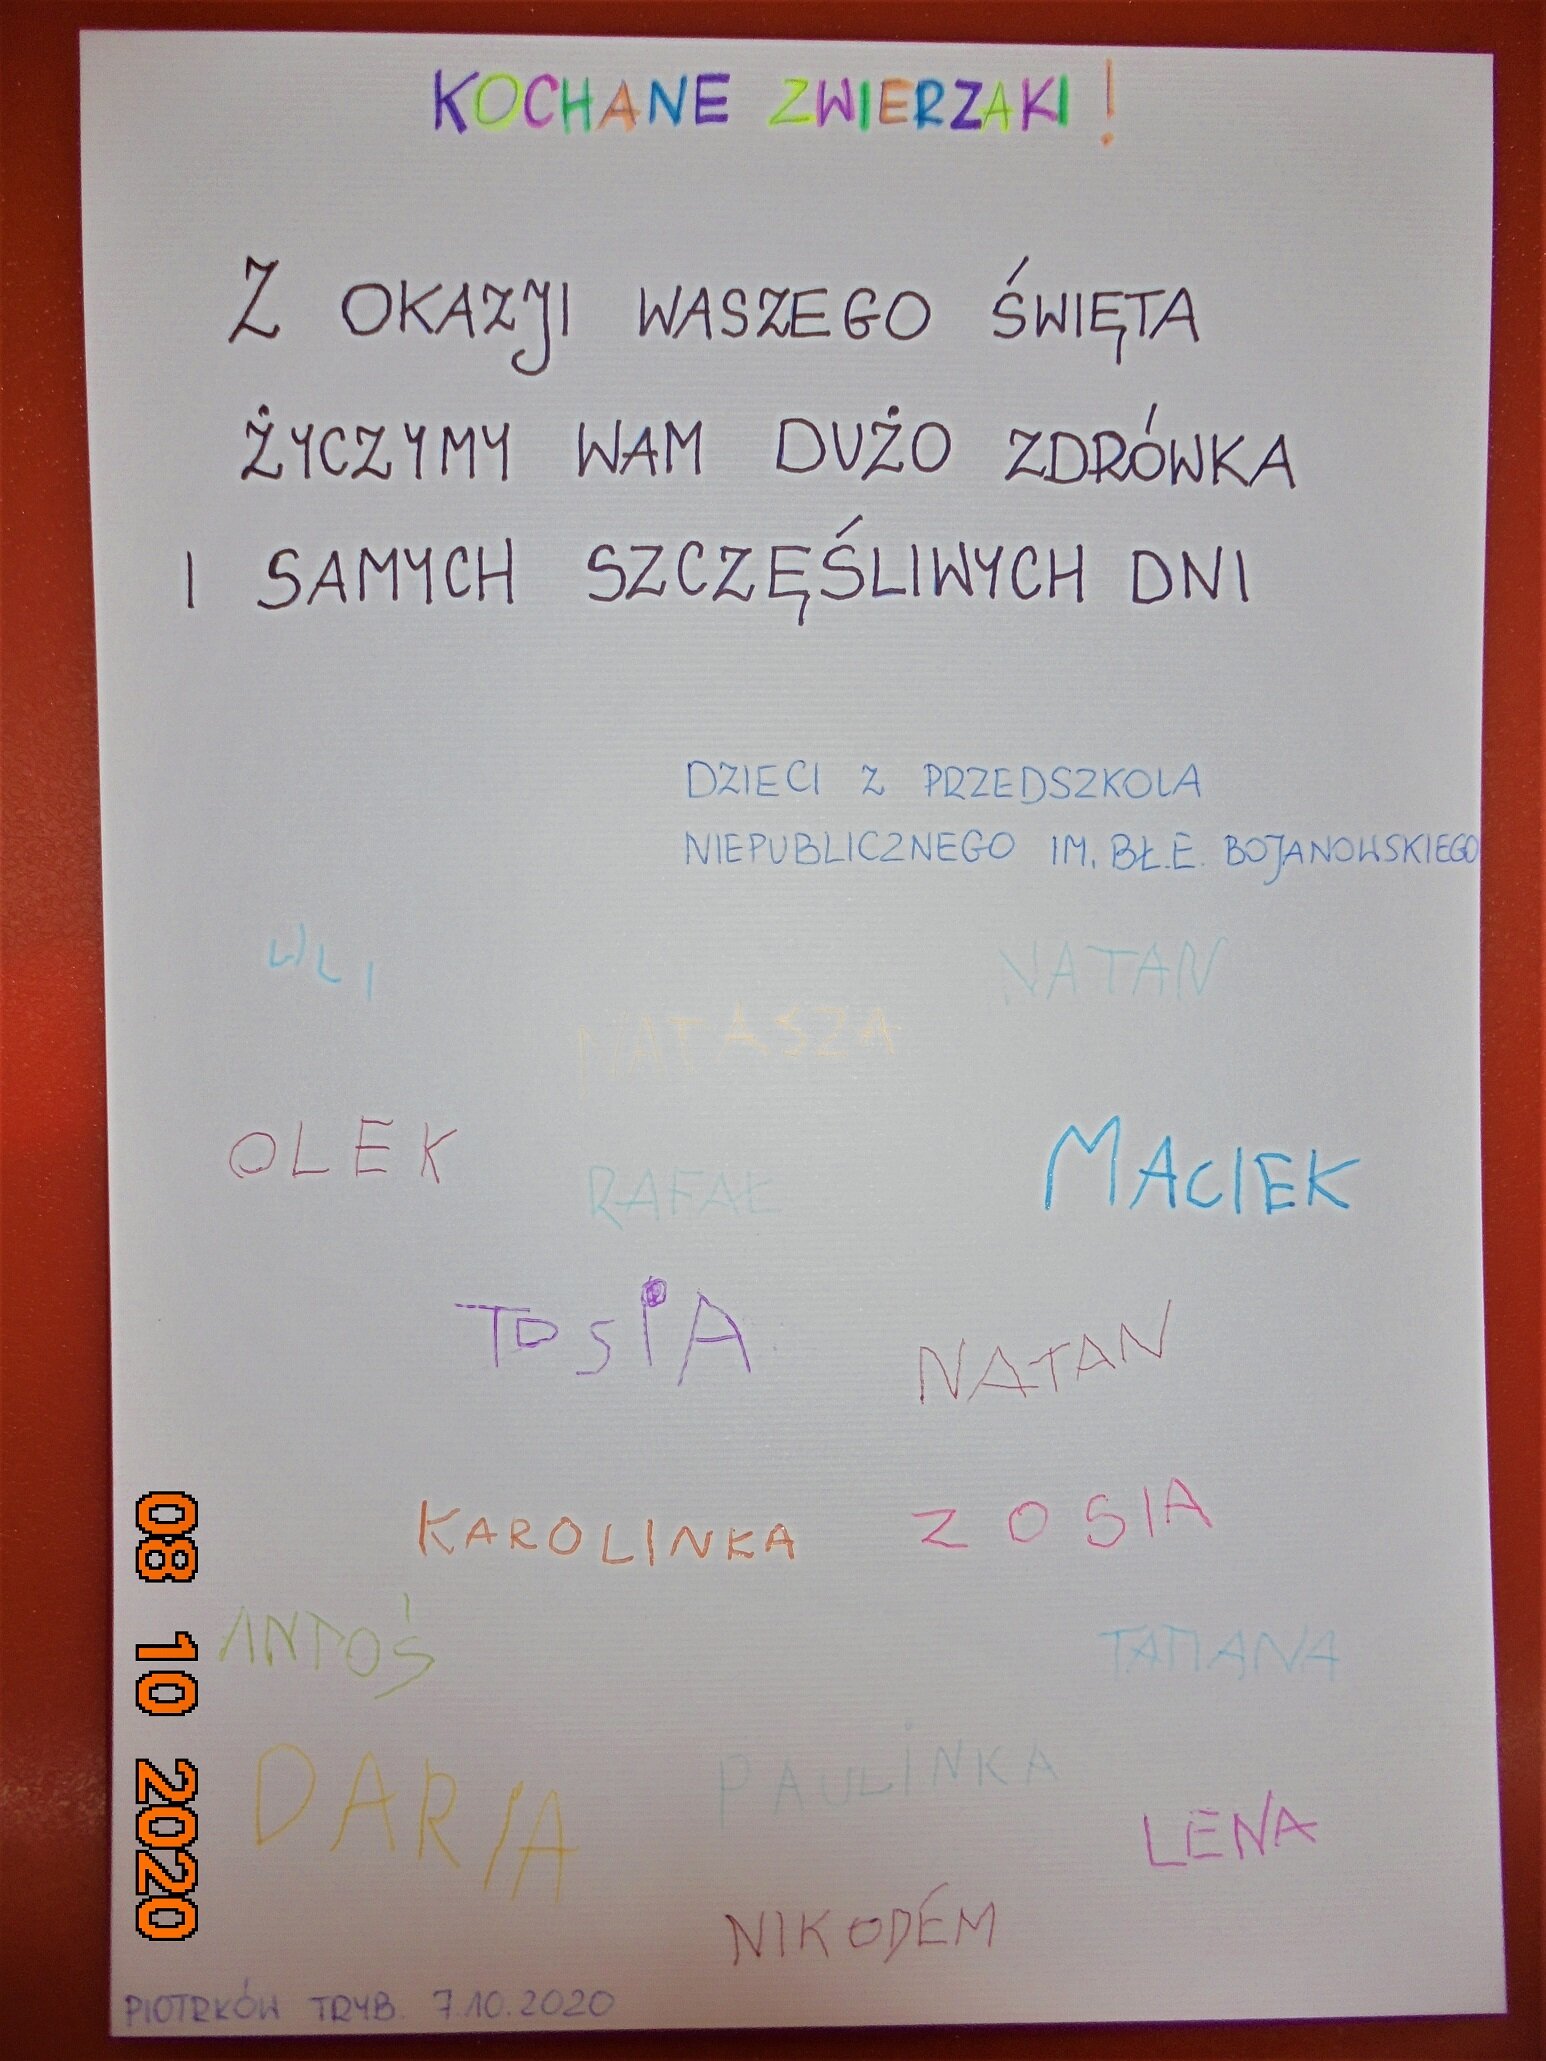 KOCHANE ZWIERZAKI!
Z OKAZJI WASZEGO ŚWIĘTA
ŻYCZYMY WAM DUŻO ZDRÓWKA
I SAMYCH SZCZĘŚLIWYCH DNI
DZIECI Z PRZEDSZKOLA
NIEPUBLICZNEGO IM. BŁ.E. BOJANOWSKIEGO
NATAN
NATASZA
OLEK
RAFAŁ
MACIEK
TOSIA
NATAN
KAROLINKA
ZOSIA
ANTOŚ
TATIANA
DARIA
PAULINKA
LENA
NIKODEM
PIOTRKÓW TRYB. 7.10.2020
08 10 2020